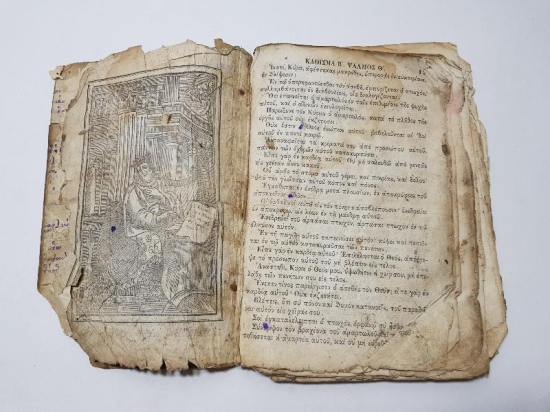 ΚΑΘΙΣΜΑ Β΄. ΨΑΛΜΟΣ Θ΄.
Ἱνατί, Κύριε, ἀφέστηκας μακρόθεν, ὑπερορᾷς ἐν εὐκαιρίαις
ἐν θλίψεσιν;
Ἐν τῷ ὑπερηφανεύεσθαι τὸν ἀσεβῆ, ἐμπυρίζεται ὁ πτωχός,
συλλαμβάνονται ἐν διαβουλίοις, οἷς διαλογίζονται.
Ὅτι ἐπαινεῖται ὁ ἁμαρτωλὸς ἐν ταῖς ἐπιθυμίαις τῆς ψυχῆς
αὐτοῦ, καὶ ὁ ἀδικῶν ἐνευλογεῖται.
Παρώξυνε τὸν Κύριον ὁ ἁμαρτωλός· κατὰ τὸ πλῆθος τῆς
ὀργῆς αὐτοῦ οὐκ ἐκζητήσει·
Οὐκ ἔστιν ὁ Θεὸς ἐνώπιον αὐτοῦ· βεβηλοῦνται αἱ ὁδοὶ
αὐτοῦ ἐν παντὶ καιρῷ.
Ἀνταναιρεῖται τὰ κρίματά σου ἀπὸ προσώπου αὐτοῦ,
πάντων τῶν ἐχθρῶν αὐτοῦ κατακυριεύσει.
Εἶπε γὰρ ἐν καρδίᾳ αὐτοῦ· Οὐ μὴ σαλευθῶ ἀπὸ γενεᾶς
εἰς γενεὰν ἄνευ κακοῦ.
Οὗ ἀρᾶς τὸ στόμα αὐτοῦ γέμει, καὶ πικρίας, καὶ δόλου,
ὑπὸ τὴν γλῶσσαν αὐτοῦ κόπος καὶ πόνος.
Ἐγκάθηται ἐν ἐνέδρᾳ μετὰ πλουσίων, ἐν ἀποκρύφοις τοῦ
ἀποκτεῖναι ἀθῷον·
Οἱ ὀφθαλμοὶ αὐτοῦ εἰς τὸν πένητα ἀποβλέπουσιν· ἐνεδρεύει
ἐν ἀποκρύφῳ, ὡς λέων ἐν τῇ μάνδρᾳ αὐτοῦ.
Ἐνεδρεύει τοῦ ἁρπάσαι πτωχόν, ἁρπάσαι πτωχὸν ἐν τῷ
ἑλκύσαι αὐτόν.
Ἐν τῇ παγίδι αὐτοῦ ταπεινώσει αὐτόν· κύψει καὶ πεσεῖται
ἐν τῷ αὐτὸν κατακυριεῦσαι τῶν πενήτων.
Εἶπε γὰρ ἐν καρδίᾳ αὐτοῦ· Ἐπιλέλησται ὁ Θεός, ἀπέστρε-
ψε τὸ πρόσωπον αὐτοῦ τοῦ μὴ βλέπειν εἰς τέλος.
Ἀνάστηθι, Κύριε ὁ Θεός μου, ὑψωθήτω ἡ χείρ σου, μὴ ἐπι-
λάθῃ τῶν πενήτων σου εἰς τέλος.
Ἕνεκεν τίνος παρώργισεν ὁ ἀσεβὴς τὸν Θεόν; εἶπε γὰρ ἐν
καρδίᾳ αὐτοῦ· Οὐκ ἐκζητήσει.
Βλέπεις, ὅτι σὺ πόνον καὶ θυμὸν κατανοεῖς, τοῦ παραδοῦ-
ναι αὐτὸν εἰς χεῖράς σου.
Σοὶ ἐγκαταλέλειπται ὁ πτωχός, ὀρφανῷ σὺ ἦσθα
Σύντριψον τὸν βραχίονα τοῦ ἁμαρτωλοῦ
ζητηθήσεται ἡ ἁμαρτία αὐτοῦ, καὶ οὐ μὴ εὑρεθῇ